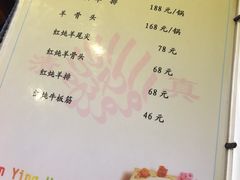 羊排 188元/锅
羊骨头 168元/锅
红炖羊尾尖 78元
红炖羊骨头 68元
红炖羊排 68元
炖牛板筋 46元
真
n Ying